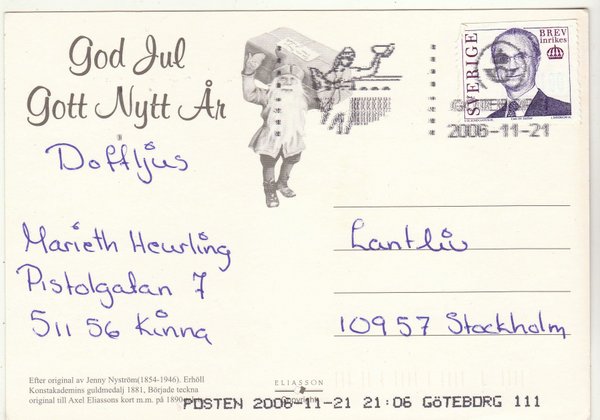 God Jul
Gott Nytt År
SVERIGE
BREV
inrikes
GÖTEBORG
2006-11-21
Doftljus
Marieth Heurling
Pistolgatan 7
511 56 Kinna
Lantliv
10957 Stockholm
Efter original av Jenny Nyström(1854-1946). Erhöll
Konstakademins guldmedalj 1881, Började teckna
original till Axel Eliassons kort m.m. på 1890
ELIASSON
Copyright
POSTEN 2006-11-21 21:06 GÖTEBORG 111